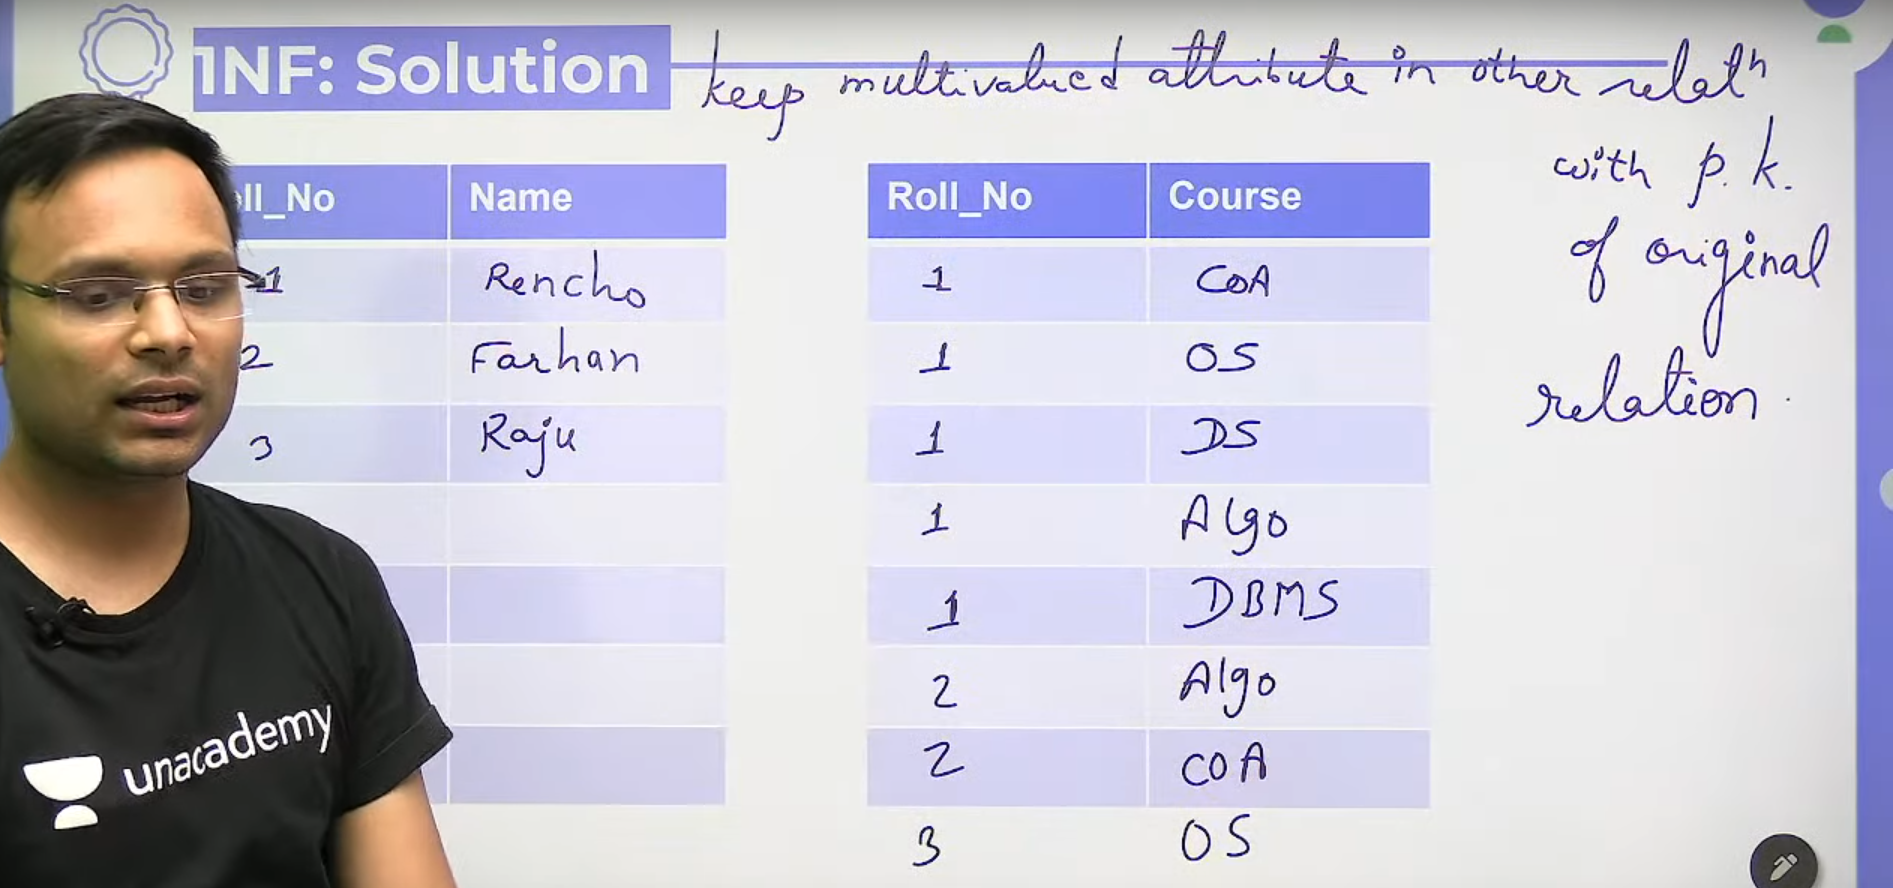 1NF: Solution
keep multivalued attribute in other relatn
with p.k.
of original
relation.
ll_No Name
1 Rencho
2 Farhan
3 Raju
Roll_No Course
1 COA
1 OS
1 DS
1 Algo
1 DBMS
2 Algo
2 COA
3 OS
unacademy